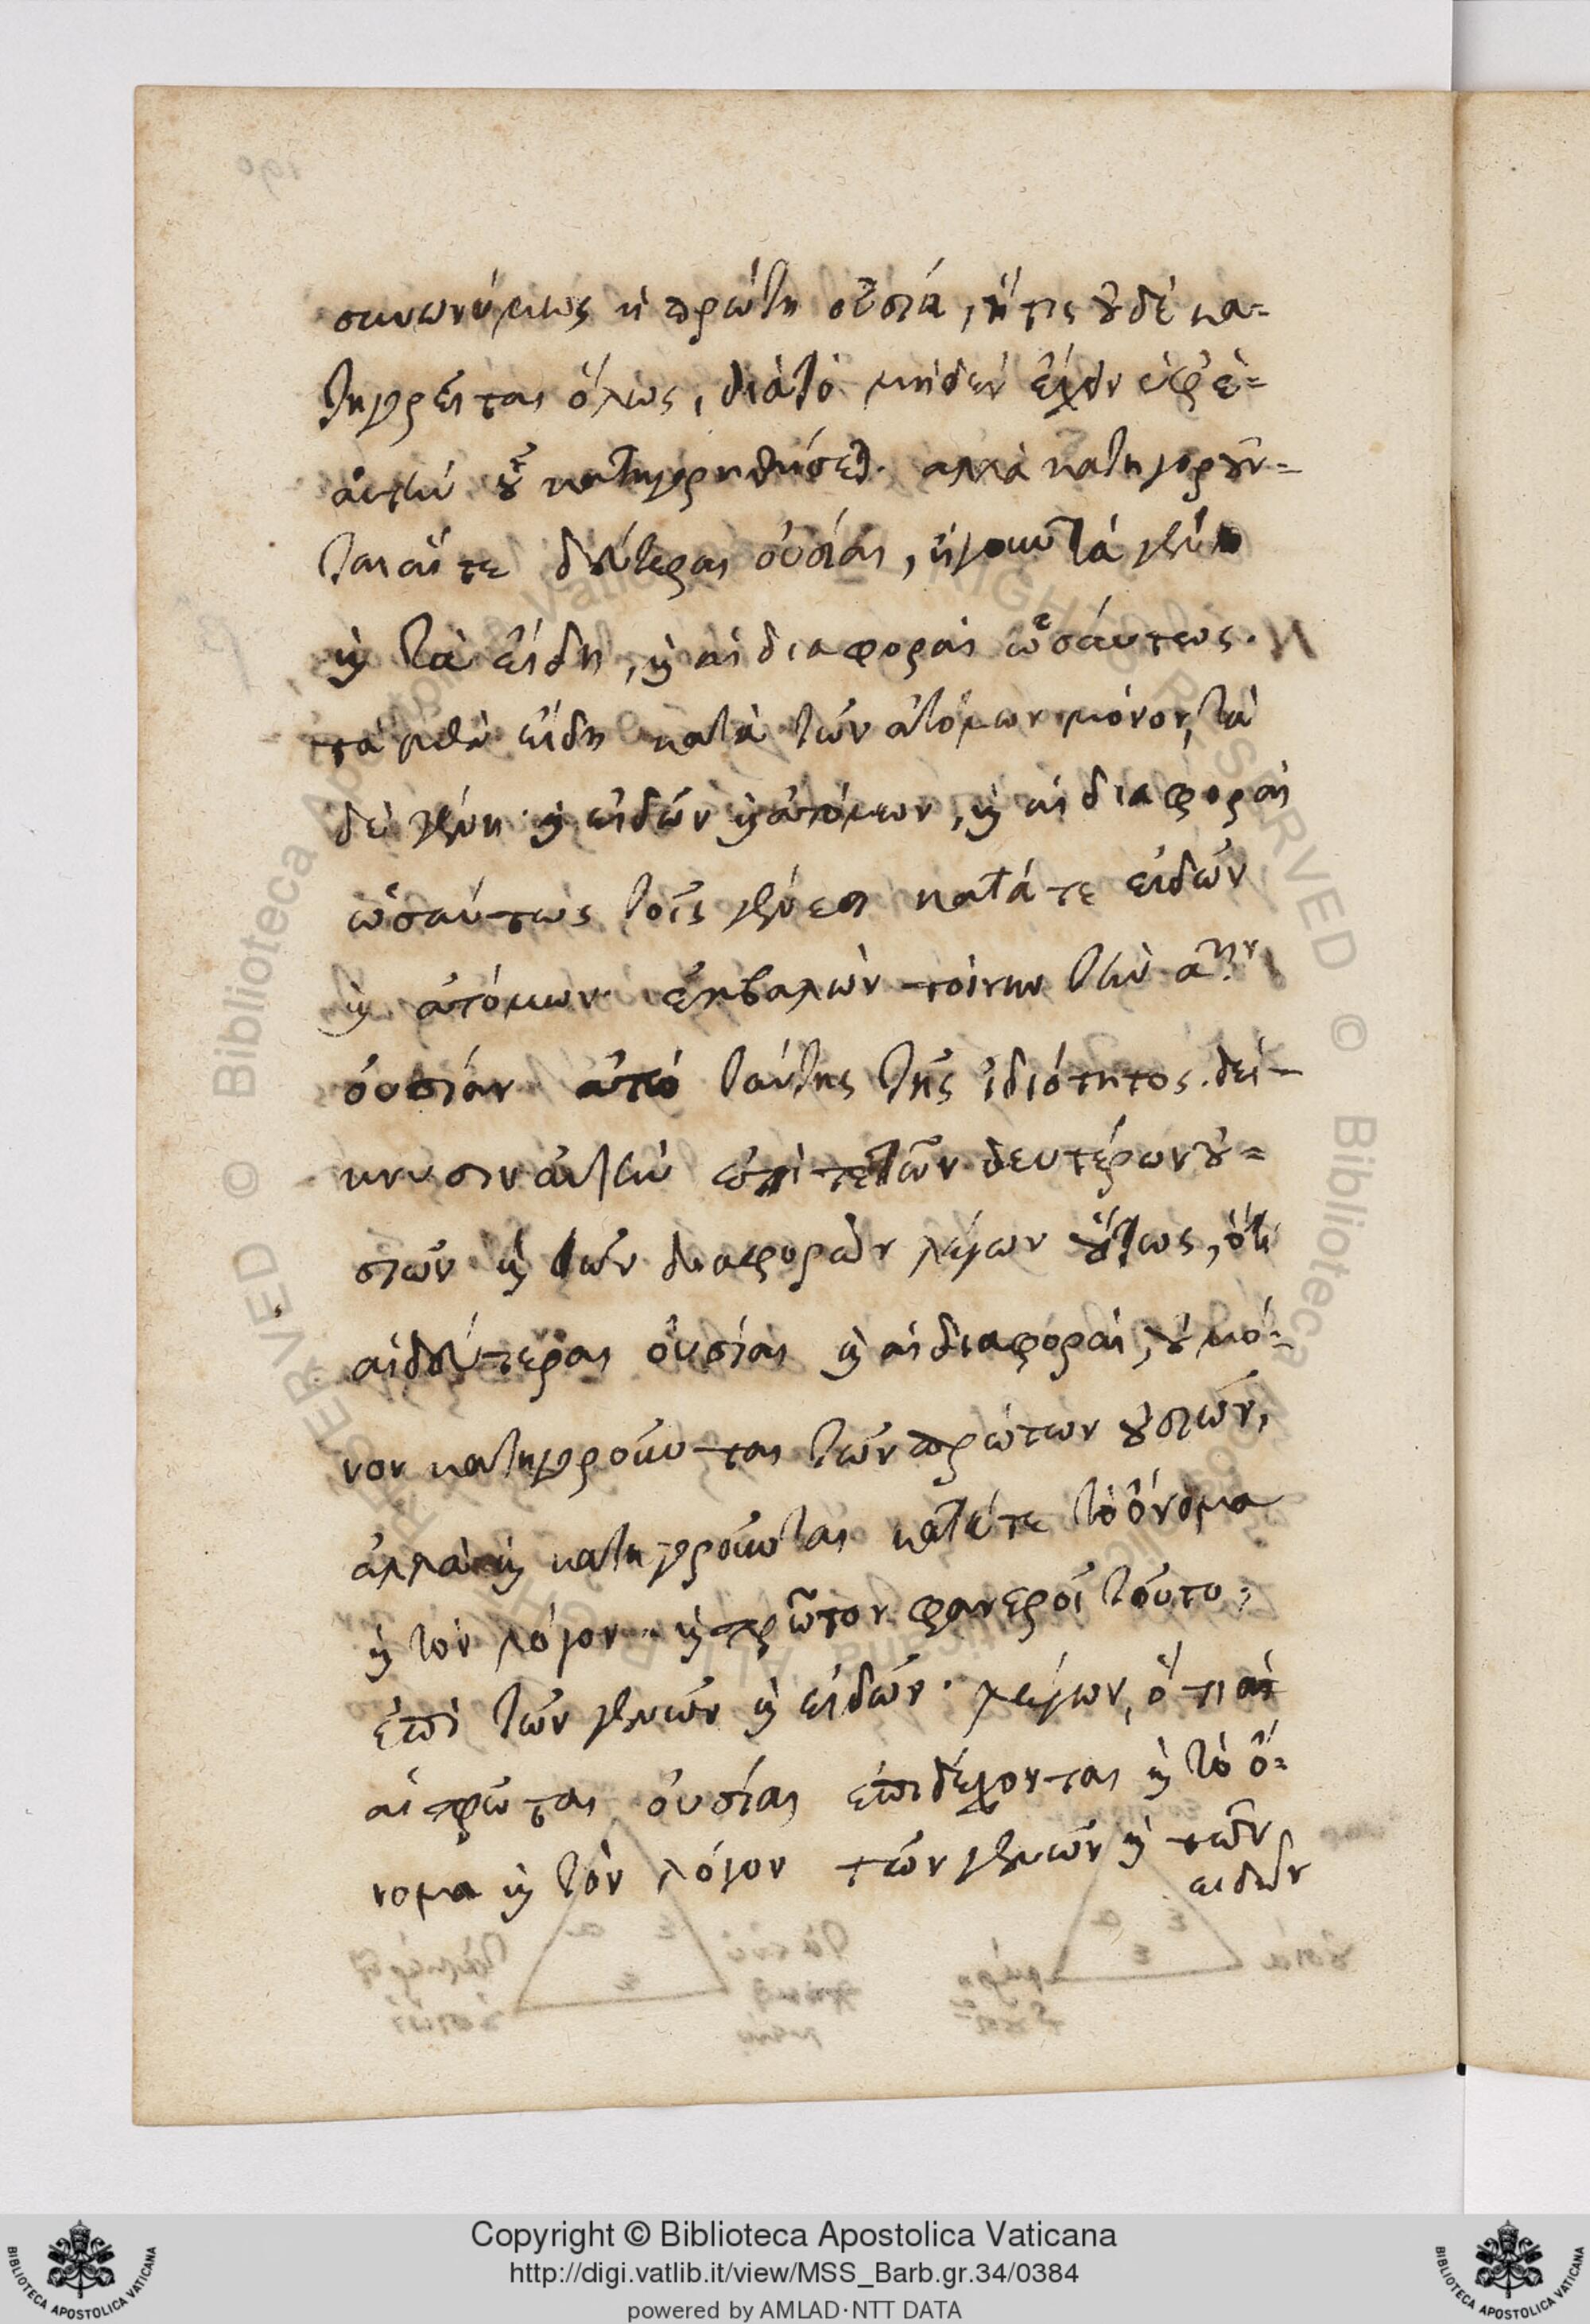 συνωνύμως ἡ πρώτη οὐσία, ἥτις ȣδὲ κα=
τηγορεῖται ὅλως, διὰτὸ μηδὲν ἔχειν ὑφ' ἑ=
αυτὴν ȣ̔͂ κατηγορηθήσεται. αλλὰ κατηγορȣν=
ται αἵ τε δεύτεραι οὐσίαι, ἤγουν τὰ γένη
καὶ τὰ εἴδη, καὶ αἱ διαφοραὶ ὡσάυτως.
τὰ μὲν εἴδη κατὰ τῶν ἀτόμων μόνον, τὰ
δὲ γένη καὶ εἰδῶν καὶ ἀτόμων, καὶ αἱ διαφοραὶ
ὡσαύτως τοῖς γένεσι κατά τε εἰδῶν
καὶ ἀτόμων. ἐκβαλὼν τοίνυν τὴν αην
ὀυσίαν ἀπὸ ταύτης τῆς ἰδιότητος. δεί-
κνυσιν ἀυτὴν ἐπί τε τῶν δευτέρων ȣ=
σιῶν καὶ τῶν διαφορῶν λέγων ȣ̔́τως, ὅτι
αἱ δεύτεραι ὀυσίαι καὶ αἱ διαφοραὶ, ȣ̓ μό-
νον κατηγοροῦνται τῶν πρώτων ȣ̓σιῶν,
ἀλλὰ καὶ κατηγοροῦνται κατά τε τὸ ὄνομα
καὶ τὸν λόγον. καὶ πρῶτον φανεροῖ τοῦτο,
ἐπὶ τῶν γενῶν καὶ εἰδῶν. λέγων, ὅτι αἱ
αἱ πρῶται ὀυσίαι ἐπιδέχονται καὶ τὸ ὄ=
νομα καὶ τὸν λόγον τῶν γενῶν καὶ τῶν
ειδῶν
Copyright © Biblioteca Apostolica Vaticana
http://digi.vatlib.it/view/MSS_Barb.gr.34/0384
powered by AMLAD·NTT DATA